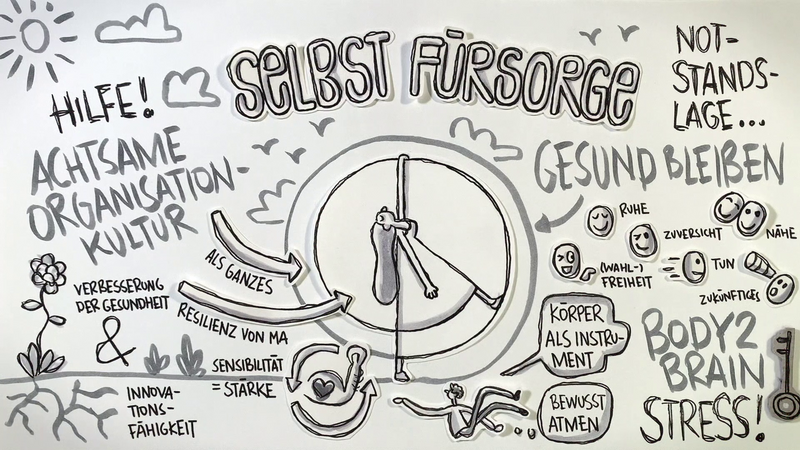 SELBST FÜRSORGE
HILFE!
ACHTSAME
ORGANISATION-
KULTUR
NOT-
STANDS-
LAGE...
GESUND BLEIBEN
RUHE
ZUVERSICHT
NÄHE
(WAHL-)
FREIHEIT
TUN
ZUKÜNFTIGES
ALS GANZES
RESILIENZ VON MA
VERBESSERUNG
DER GESUNDHEIT
&
INNOVA-
TIONS-
FÄHIGKEIT
SENSIBILITÄT
= STÄRKE
KÖRPER
ALS INSTRU-
MENT
BEWUSST
ATMEN
BODY2
BRAIN
STRESS!